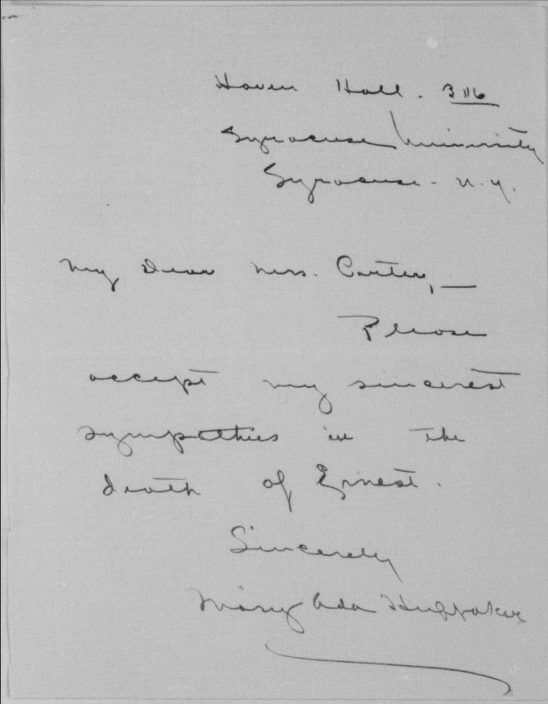 Haven Hall. 316
Syracuse University
Syracuse - N.Y.
My Dear Mrs. Carter, —
Please
accept my sincerest
sympathies in the
death of Ernest.
Sincerely
Mary Ada Huffaker